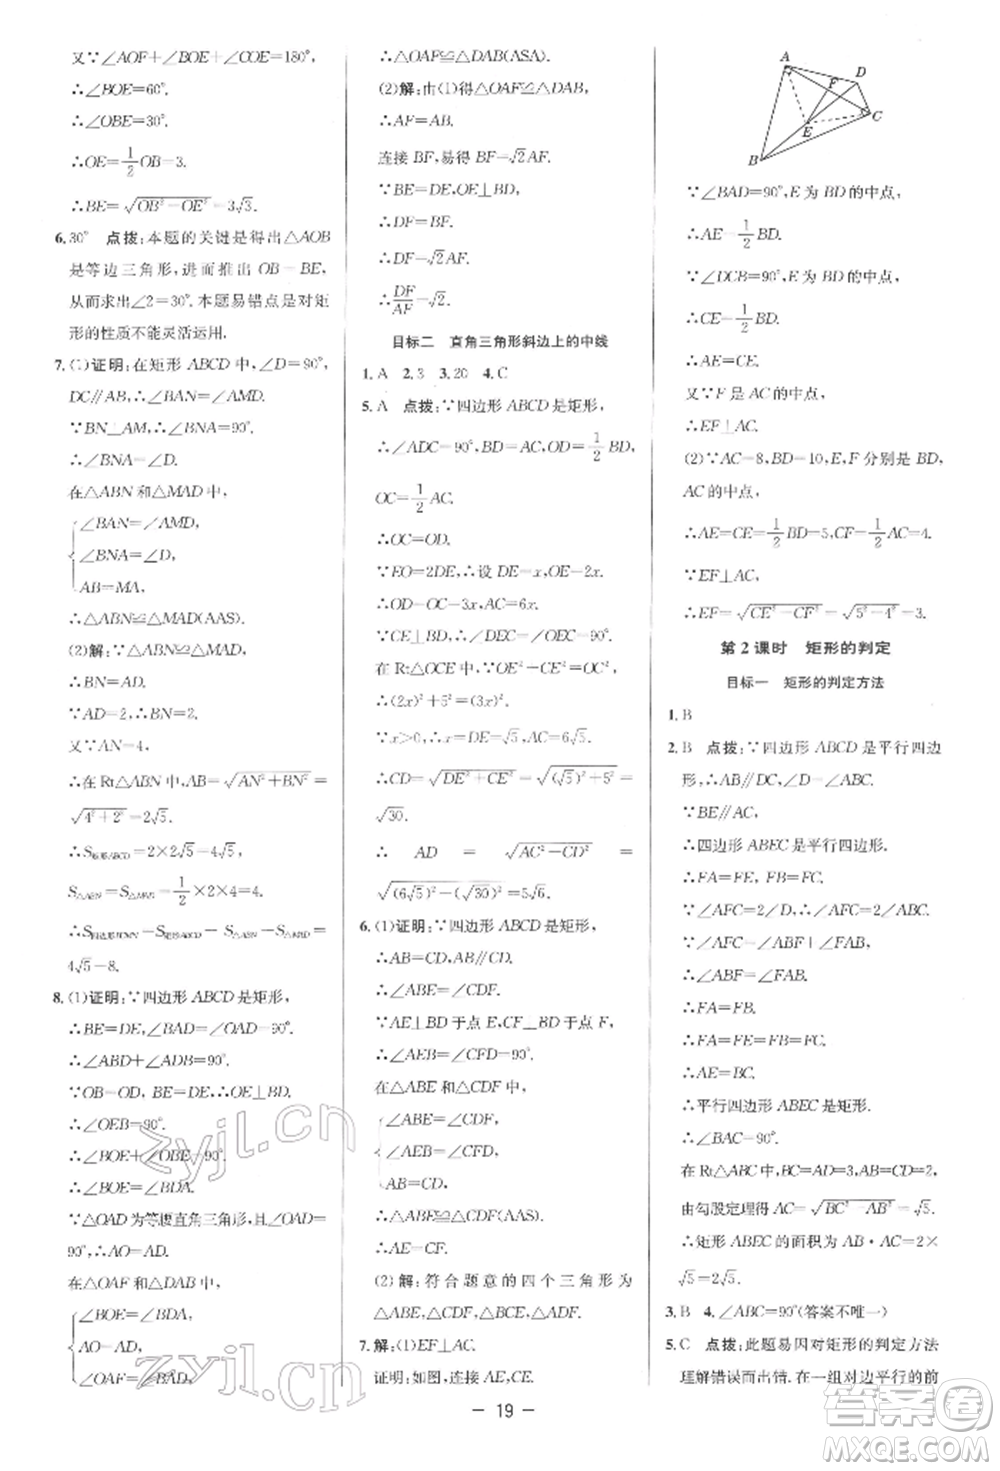 又∵∠AOF+∠BOF+∠COE=180°
∴∠BOE=60°.
∴∠OBE=30°.
∴OE=1/2OB=3.
∴BE=√(OB²-OE²)=3√3.
6.30° 点拨:本题的关键是得出△AOB
是等边三角形,进而推出OB=BE,
从而求出∠2=30°.本题易错点是对矩
形的性质不能灵活运用.
7.(1)证明:在矩形ABCD中,∠D=90°,
DC∥AB,∴∠BAN=∠AMD.
∵BN⊥AM,∴∠BNA=90°.
∴∠BNA=∠D.
在△ABN和△MAD中,
∠BAN=∠AMD,
∠BNA=∠D,
AB=MA,
∴△ABN≌△MAD(AAS).
(2)解:∵△ABN≌△MAD,
∴BN=AD.
∵AD=2,∴BN=2.
又∵AN=4,
∴在Rt△ABN中,AB=√(AN²+BN²)=
√(4²+2²)=2√5.
∴S矩形ABCD=2×2√5=4√5,
S△ABN=S△MAD=1/2×2×4=4.
∴S四边形BCMN=S矩形ABCD-S△ABN-S△MAD=
4√5-8.
8.(1)证明:∵四边形ABCD是矩形,
∴BE=DE,∠BAD=∠OAD=90°.
∴∠ABD+∠ADB=90°.
∵OB=OD,BE=DE,∴OE⊥BD.
∴∠OEB=90°.
∴∠BOE+∠OBE=90°.
∴∠BOE=∠BDA.
∵△OAD为等腰直角三角形,且∠OAD=
90°,∴AO=AD.
在△OAF和△DAB中,
∠BOE=∠BDA,
AO=AD,
∠OAF=∠BAD,
∴△OAF≌△DAB(ASA).
(2)解:由(1)得△OAF≌△DAB,
∴AF=AB.
连接BF,易得BF=√2AF.
∵BE=DE,OE⊥BD,
∴DF=BF.
∴DF=√2AF.
∴DF/AF=√2.
目标二 直角三角形斜边上的中线
1.A 2.3 3.20 4.C
5.A 点拨:∵四边形ABCD是矩形,
∴∠ADC=90°,BD=AC,OD=1/2BD,
OC=1/2AC.
∴OC=OD.
∵EO=2DE,∴设DE=x,OE=2x.
∴OD=OC=3x,AC=6x.
∵CE⊥BD,∴∠DEC=∠OEC=90°.
在Rt△OCE中,∵OE²+CE²=OC²,
∴(2x)²+5²=(3x)².
∵x>0,∴x=DE=√5,AC=6√5.
∴CD=√(DE²+CE²)=√((√5)²+5²)=
√30.
∴AD=√(AC²-CD²)=
√((6√5)²-(√30)²)=5√6.
6.(1)证明:∵四边形ABCD是矩形,
∴AB=CD,AB∥CD.
∴∠ABE=∠CDF.
∵AE⊥BD于点E,CF⊥BD于点F,
∴∠AEB=∠CFD=90°.
在△ABE和△CDF中,
∠ABE=∠CDF,
∠AEB=∠CFD,
AB=CD,
∴△ABE≌△CDF(AAS).
∴AE=CF.
(2)解:符合题意的四个三角形为
△ABE,△CDF,△BCE,△ADF.
7.解:(1)EF⊥AC.
证明:如图,连接AE,CE.
A
D
F
E
C
B
∵∠BAD=90°,E为BD的中点,
∴AE=1/2BD.
∵∠DCB=90°,E为BD的中点,
∴CE=1/2BD.
∴AE=CE.
又∵F是AC的中点,
∴EF⊥AC.
(2)∵AC=8,BD=10,E,F分别是BD,
AC的中点,
∴AE=CE=1/2BD=5,CF=1/2AC=4.
∵EF⊥AC,
∴EF=√(CE²-CF²)=√(5²-4²)=3.
第2课时 矩形的判定
目标一 矩形的判定方法
1.B
2.B 点拨:∵四边形ABCD是平行四边
形,∴AB∥DC,∠D=∠ABC.
∵BE∥AC,
∴四边形ABEC是平行四边形.
∴FA=FE,FB=FC.
∵∠AFC=2∠D,∴∠AFC=2∠ABC.
∵∠AFC=∠ABF+∠BAF,
∴∠ABF=∠BAF.
∴FA=FB.
∴FA=FE=FB=FC.
∴AE=BC.
∴平行四边形ABEC是矩形.
∴∠BAC=90°.
在Rt△ABC中,BC=AD=3,AB=CD=2,
由勾股定理得AC=√(BC²-AB²)=√5.
∴矩形ABEC的面积为AB·AC=2×
√5=2√5.
3.B 4.∠ABC=90°(答案不唯一)
5.C 点拨:此题易因对矩形的判定方法
理解错误而出错.在一组对边平行的前
— 19 —
zyjl.cn
zyjl.cn
答案圈
MXQE.COM